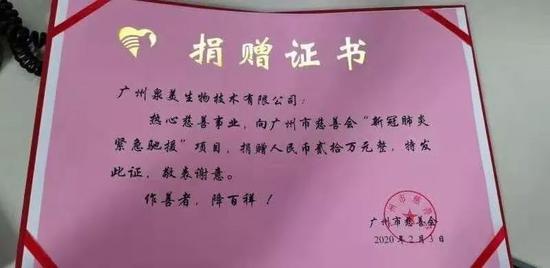 捐赠证书
广州泉美生物技术有限公司：
热心慈善事业，向广州市慈善会“新冠肺炎
紧急驰援”项目，捐赠人民币贰拾万元整，特发
此证，敬表谢意。
作善者，降百祥！
广州市慈善会
2020年2月3日